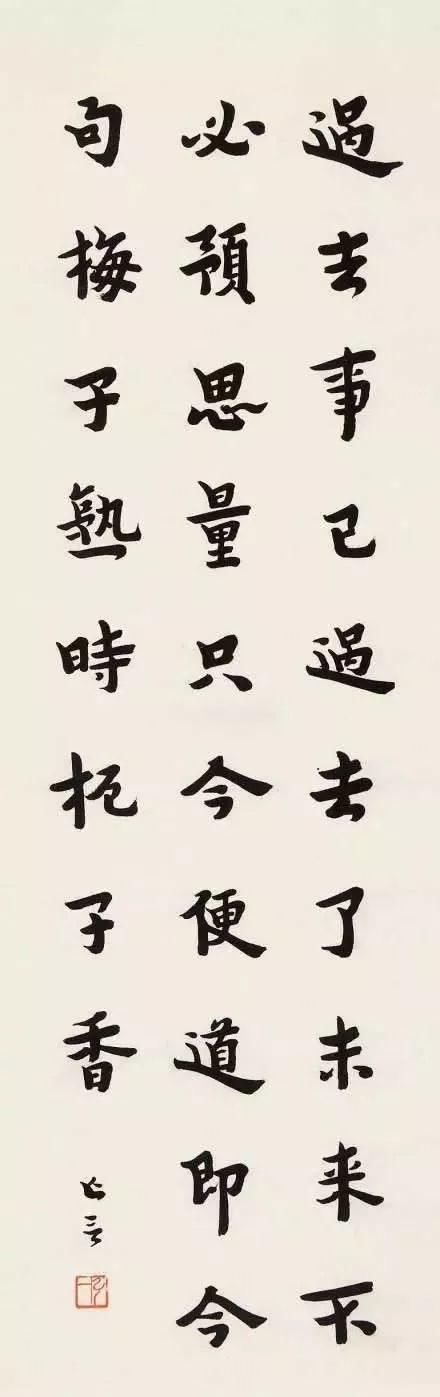 過去事已過去了未来不
必預思量只今便道即今
句梅子熟時枙子香
亡言